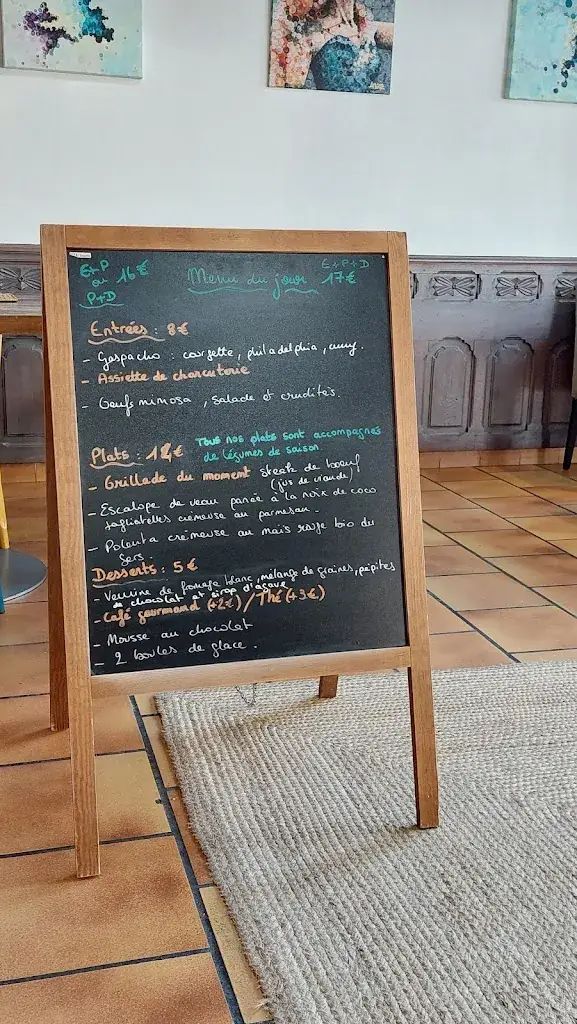 E+P
ou 16€
P+D
Menu du jour
E+P+D
17€
Entrées : 8€
- Gaspacho : courgette, philadelphia, curry.
- Assiette de charcuterie
- Oeuf mimosa, salade et crudités.
Plats : 12€
Tous nos plats sont accompagnés
de légumes de saison
- Grillade du moment steak de boeuf
(jus de viande)
- Escalope de veau panée à la noix de coco
tagliatelles crémeuse au parmesan.
- Polenta crémeuse au maïs rouge bio du
Gers.
Desserts : 5€
- Verrine de fromage blanc, mélange de graines, pépites
de chocolat et sirop d'agave
- Café gourmand (+2€) / Thé (+3€)
- Mousse au chocolat
- 2 boules de glace.